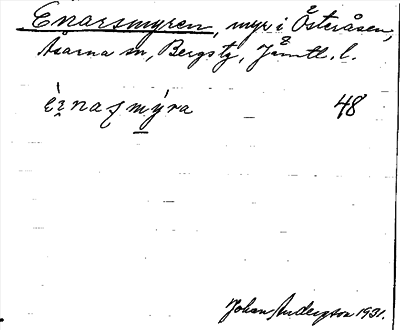 Enarsmyren, myr i Österåsen,
Åsarna sn, Bergs tg, Jämtl. l.
èɪnaʂmýra 48
Johan Anderzon 1931.